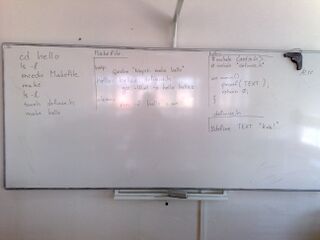 cd hello
ls -l
mcedit Makefile
make
ls -l
touch define.h
make hello
Makefile
help:
@echo "Napis: make hello"
hello:
gcc -Wall -o hello hello.c
clean:
hello
# include <stdio.h>
# include "define.h"
int main()
{
printf( TEXT );
return 0;
}
define.h
#define TEXT "Kuk!"